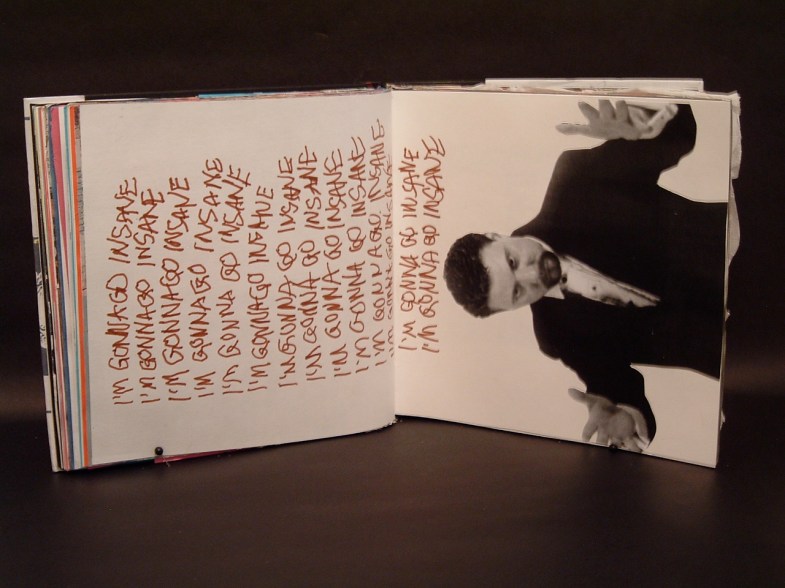 I'M GONNAGO INSANE
I'M GONNAGO INSANE
I'M GONNAGO INSANE
I'M GONNAGO INSANE
I'M GONNA GO INSANE
I'M GONNAGO INSANE
I'M GONNA GO INSANE
I'M GONNA GO INSANE
I'M GONNA GO INSANE
I'M GONNA GO INSANE
I'M GONNA GO INSANE
I'M GONNA GO INSANE
I'M GONNA GO INSANE
I'M GONNA GO INSANE